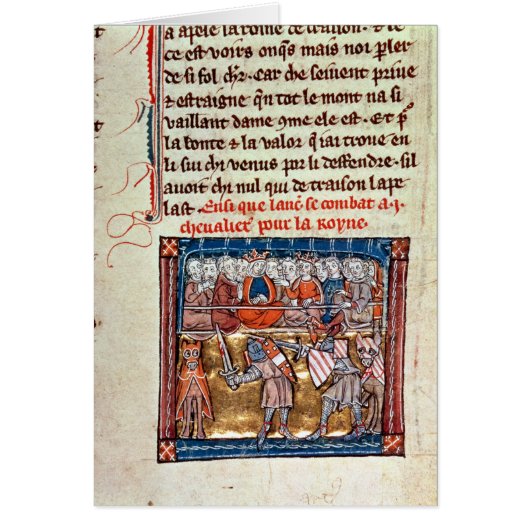 a apele la roine de traison
ce est voirs onq̃s mais noi pler
de si fol chr̃. Car che seiuent priue
⁊ estraigne qñ tot le mont na si
vaillant dame ꝯme ele est. Et p̃
la bonte ⁊ la valor q̃ iai troue en
li sui chi venus por li deffendre. sil
auoit chi nul qui de traison lape
last. Ensi que lanc̃. se combat a .j.
cheualier pour la Royne.